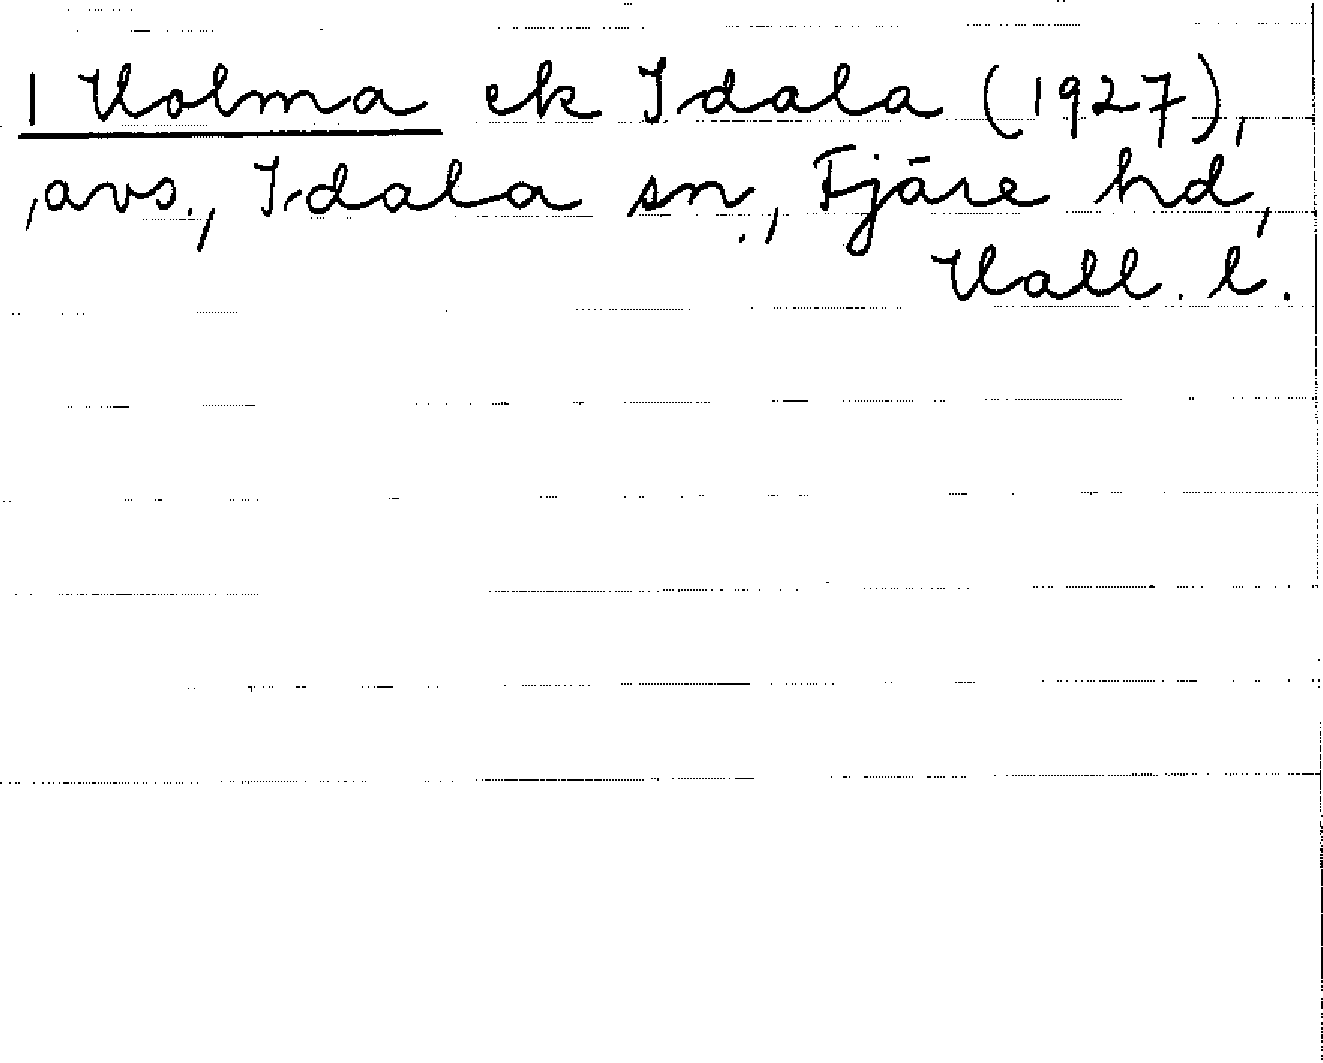 1 Holma ek Idala (1927),
, avs., Idala sn., Fjäre hd,
Hall. l.